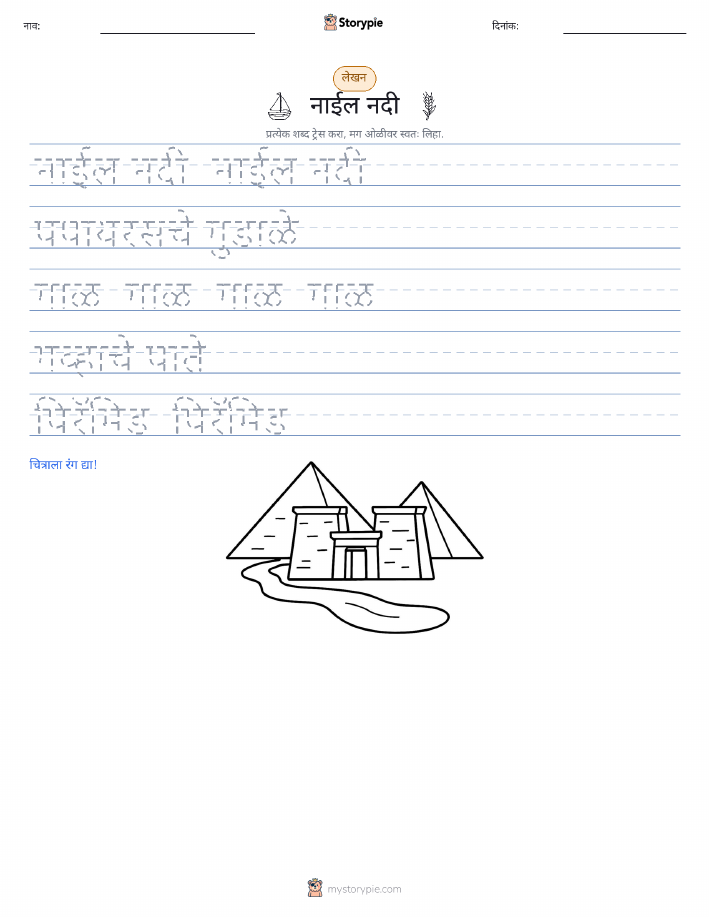 नाव:
Storypie
दिनांक:
लेखन
नाईल नदी
प्रत्येक शब्द ट्रेस करा, मग ओळीवर स्वतः लिहा.
नाईल नदी नाईल नदी
पपायरसचे गुडाळे
गाळ गाळ गाळ गाळ
गव्हाचे पाते
पिरॅमिड पिरॅमिड
चित्राला रंग द्या!
mystorypie.com